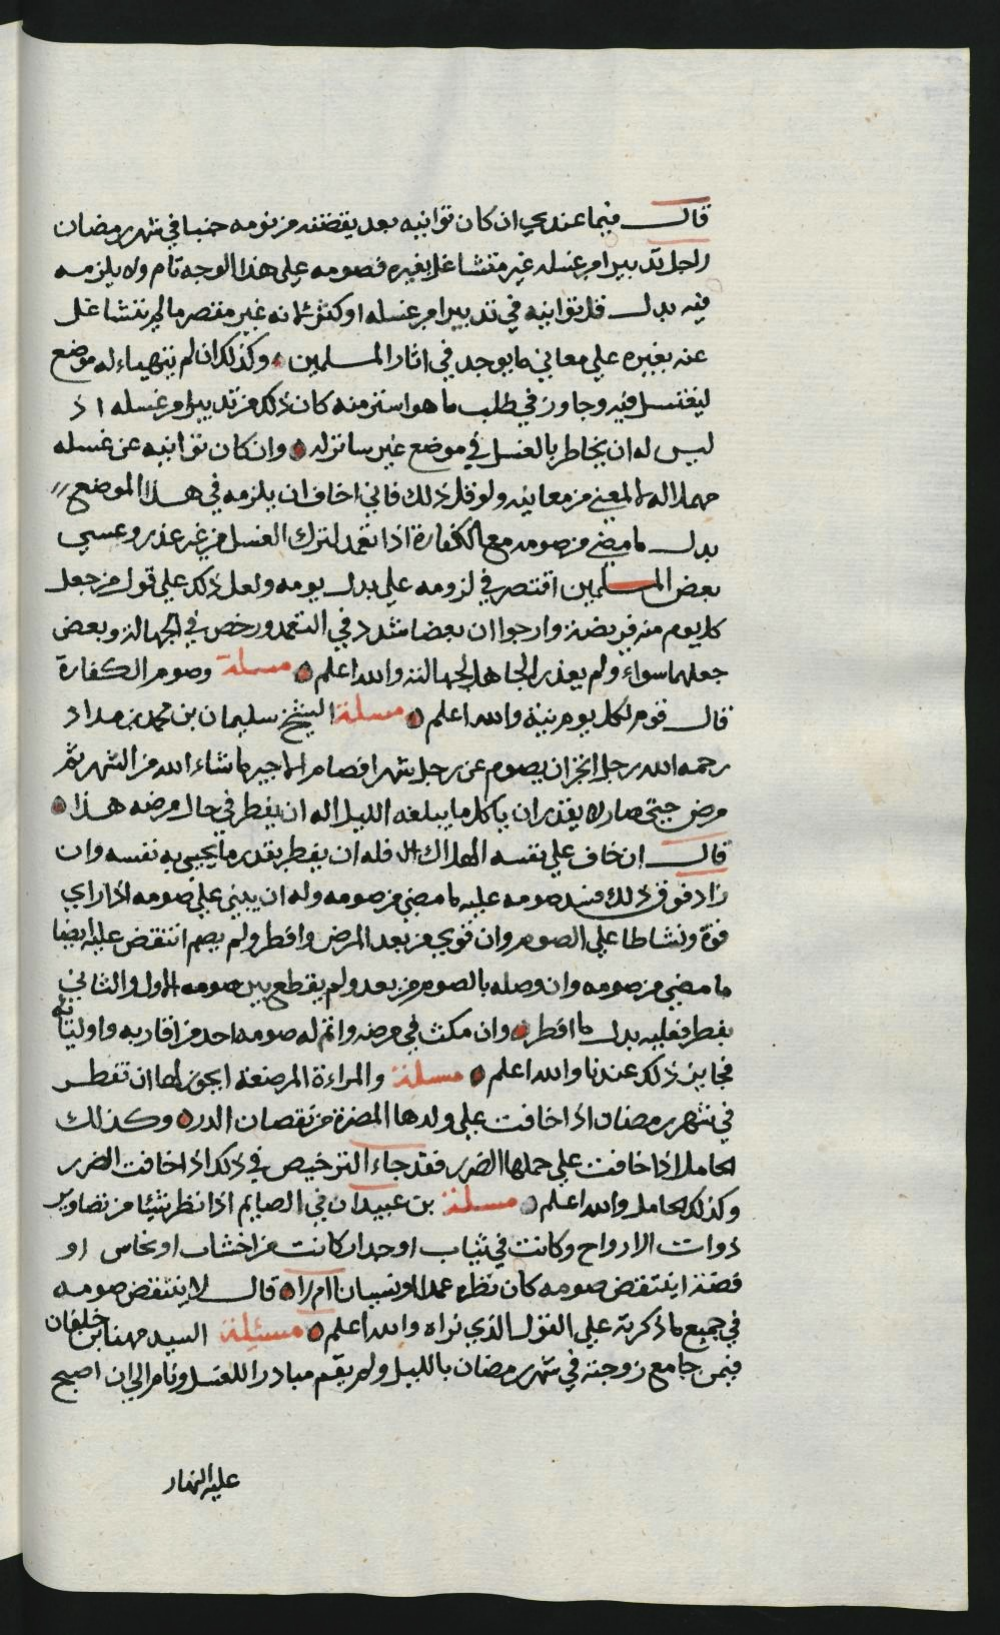 قال فيما عندي ان كان توانيه بعد يقضته من نومه جنبا في شهر رمضان
لاجل تدبير امر غسله غير متشاغل بغيره فصومه على هذا الوجه تام ولا يلزمه
فيه بدل قل توانيه في تدبير امر غسله او كثر ثم انه غير مقصر ما لم يتشاغل
عنه بغيره علي معاني ما يوجد في اثار المسلمين وكذلك ان لم يتهياء له موضع
ليغتسل فيه وجاوز في طلب ما هو استر منه كان ذلك من تدبير امر غسله اذ
ليس له ان يخاطر بالغسل في موضع غير ساتر له وان كان توانيه عن غسله
مهملا له لا لمعني من معانيه ولو قل ذلك فاني اخاف ان يلزمه في هذا الموضع
بدل ما مضي من صومه مع الكفارة اذا تعمد لترك الغسل من غير عذر وعسي
بعض المسلمين اقتصر في لزومه علي بدل يومه ولعل ذلك علي قول من جعل
كل يوم منه فريضة وارجوا ان بعضا شدد في التعمد ورخص في الجهالة وبعض
جعلهما سواء ولم يعذر الجاهل لجهالته والله اعلم مسئلة وصوم الكفارة
قال قوم لكل يوم نية والله اعلم مسئلة الشيخ سليمان بن محمد بن مداد
رحمه الله رجل اتجر ان يصوم عن رجل شهرا فصام الاجير ما شاء الله من الشهر ثم
مرض حتى صار لا يقدر ان ياكل ما يبلغه الليل اله ان يفطر في حال مرضه هذا
قال ان خاف علي نفسه الهلاك فله ان يفطر بقدر ما يحيي به نفسه وان
زاد فوق ذلك فسد صومه عليه ما مضي من صومه وله ان يبني علي صومه اذا راي
قوة ونشاطا علي الصوم وان قوي من بعد المرض وافطر ولم يصم انتقض عليه ايضا
ما مضي من صومه وان وصله بالصوم من بعد ولم يقطع بين صومه الاول والثاني
بفطر فعليه بدل ما افطر وان مكث في مرضه واتم له صومه احد من اقاربه واوليائه
فجايز ذلك عندنا والله اعلم مسئلة والمراءة المرضعة ايجوز لها ان تفطر
في شهر رمضان اذا خافت علي ولدها المضرة من نقصان الدر وكذلك
الحامل اذا خافت علي حملها الضرر فقد جاء الترخيص في ذلك اذا خافت الضرر
وكذلك الحامل والله اعلم مسئلة بن عبيدان في الصايم اذا نظر شيئا من تصاوير
ذوات الارواح وكانت في ثياب او جدار كانت من اخشاب او نحاس او
فضة اينتقض صومه كان نظره عمدا او نسيانا ام لا قال لا ينتقض صومه
في جميع ما ذكرته علي القول الذي نراه والله اعلم مسئلة السيد مهنا بن خلفان
فيمن جامع زوجته في شهر رمضان بالليل ولم يقم مبادرا للغسل ونام الي ان اصبح
عليه النهار